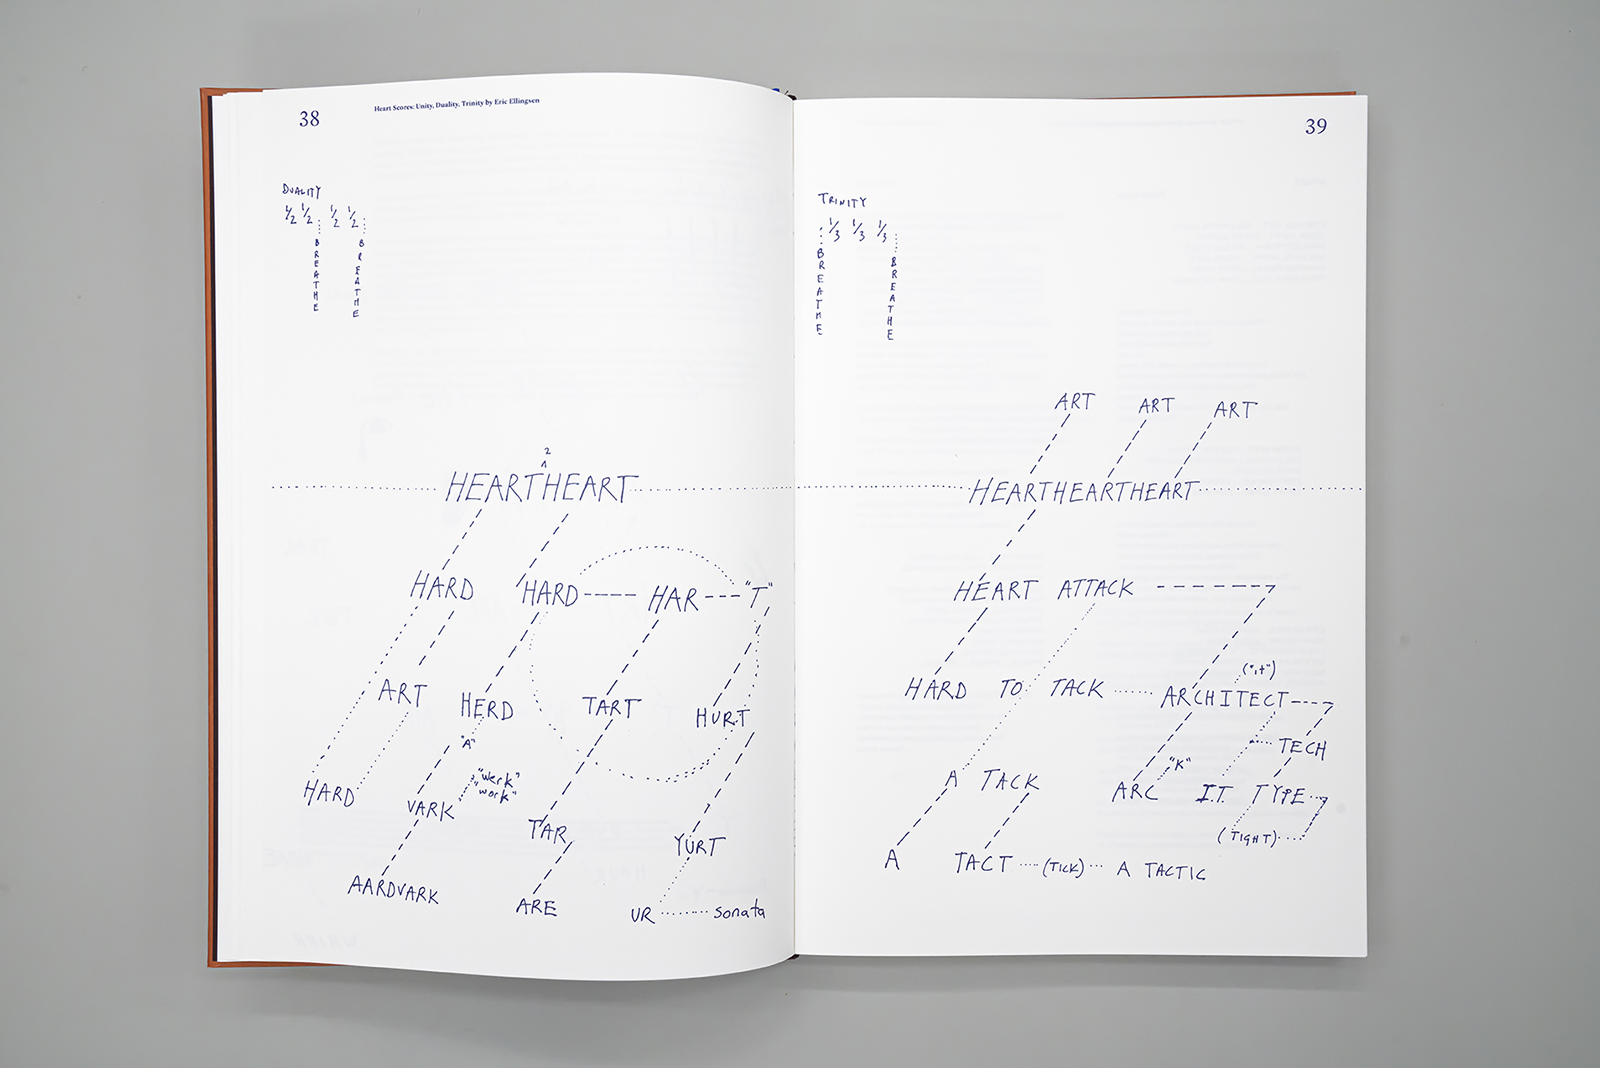 38
Heart Scores: Unity, Duality, Trinity by Eric Ellingsen
DUALITY
1/2 1/2 1/2 1/2
BREATHE BREATHE
2
HEARTHEART
HARD HARD HAR "T"
ART HERD TART HURT
"A"
"werk"
"work"
HARD VARK TAR YURT
AARDVARK ARE UR sonata
39
TRINITY
1/3 1/3 1/3
BREATHE BREATHE
ART ART ART
HEARTHEARTHEART
HEART ATTACK
(",t")
HARD TO TACK ARCHITECT
TECH
"K"
A TACK ARC I.T. TYPE
(TIGHT)
A TACT (TICK) A TACTIC